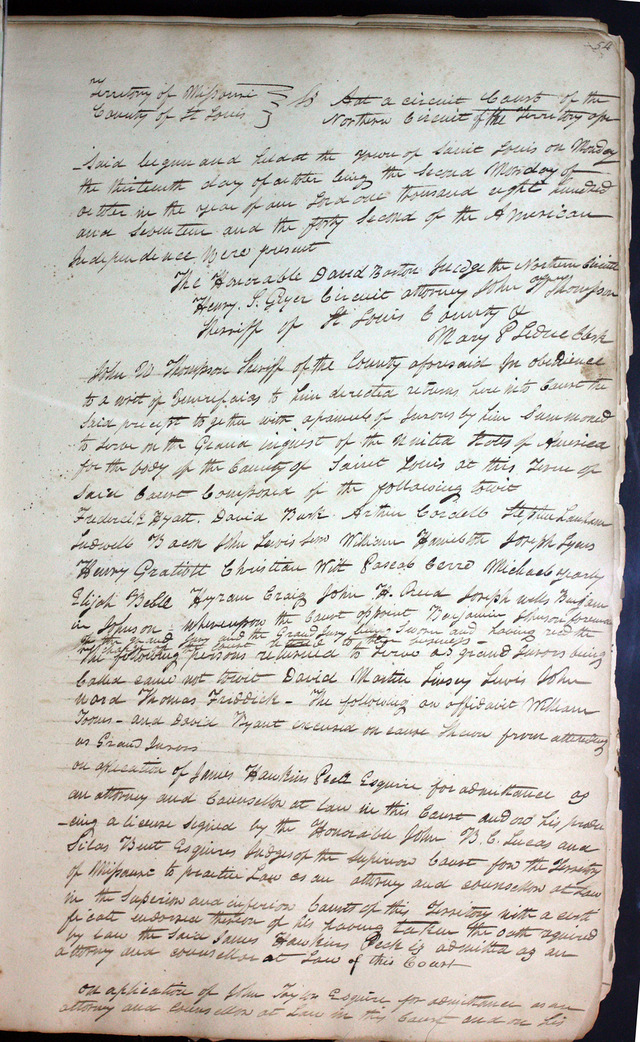 54
Territory of Missouri } Ss At a circuit Court of the
County of St Louis } Northern Circuit of the Territory afore
said begun and held at the Town of Saint Louis on Monday
the thirteenth day of october being the second Monday of
october in the year of our Lord one thousand eight hundred
and seventeen and the forty second of the American
Independence Were present
The Honorable David Barton Judge the Northern Circuit
Henry S. Geyer Circuit attorney John W Thompson
Sheriff of St Louis County &
Mary P Leduc Clerk
John W Thompson Sheriff of the County aforesaid In obedience
to a writ of Venire facias to him directed returns here into Court the
said precept together with a pannels of Jurors by him Summoned
to serve on the Grand inquest of the United States of America
for the body of the County of Saint Louis at this Term of
said Court Composed of the following towit
Frederick Hyatt. David Bark. Arthur Cordell Stephen Lanham
Ludwell Bacon John Lewis senr William Hamilton Joseph
Henry Gratiott Christian Witt Pascal Cerre Michael
Elijah Hyram Craig John H. Reed Joseph Wells Benjam
in Johnson. whereupon the Court appoint Benjamin Johnson foreman
of the grand Jury and the Grand Jury being Sworn and having recd the
charge of the Court retired to
The following persons returned to serve as grand Jurors being
Called came not towit David Linsey Lewis John
ward Thomas Friddick - The following on affidavit William
- and David excused on cause shewn from attending
as Grand Jurors
on aplication of James Hawkins Peck Esquire for admittance as
an attorney and Counsellor at Law in this Court and on his produ
-cing a license signed by the Honorable John B. C. Lucas and
Silas Bent Esquires Judges of the Superior Court for the Territory
of Missouri to practice Law as an attorney and counsellor at Law
in the Superior and inferior Courts of this Territory with a certi
ficate endorsed thereon of his having taken the oath required
by law the said James Hawkins Peck is admitted as an
attorney and counsellor at Law of this Court
on aplication of John Esquire for admittance as an
attorney and counsellor at Law in this Court and on his